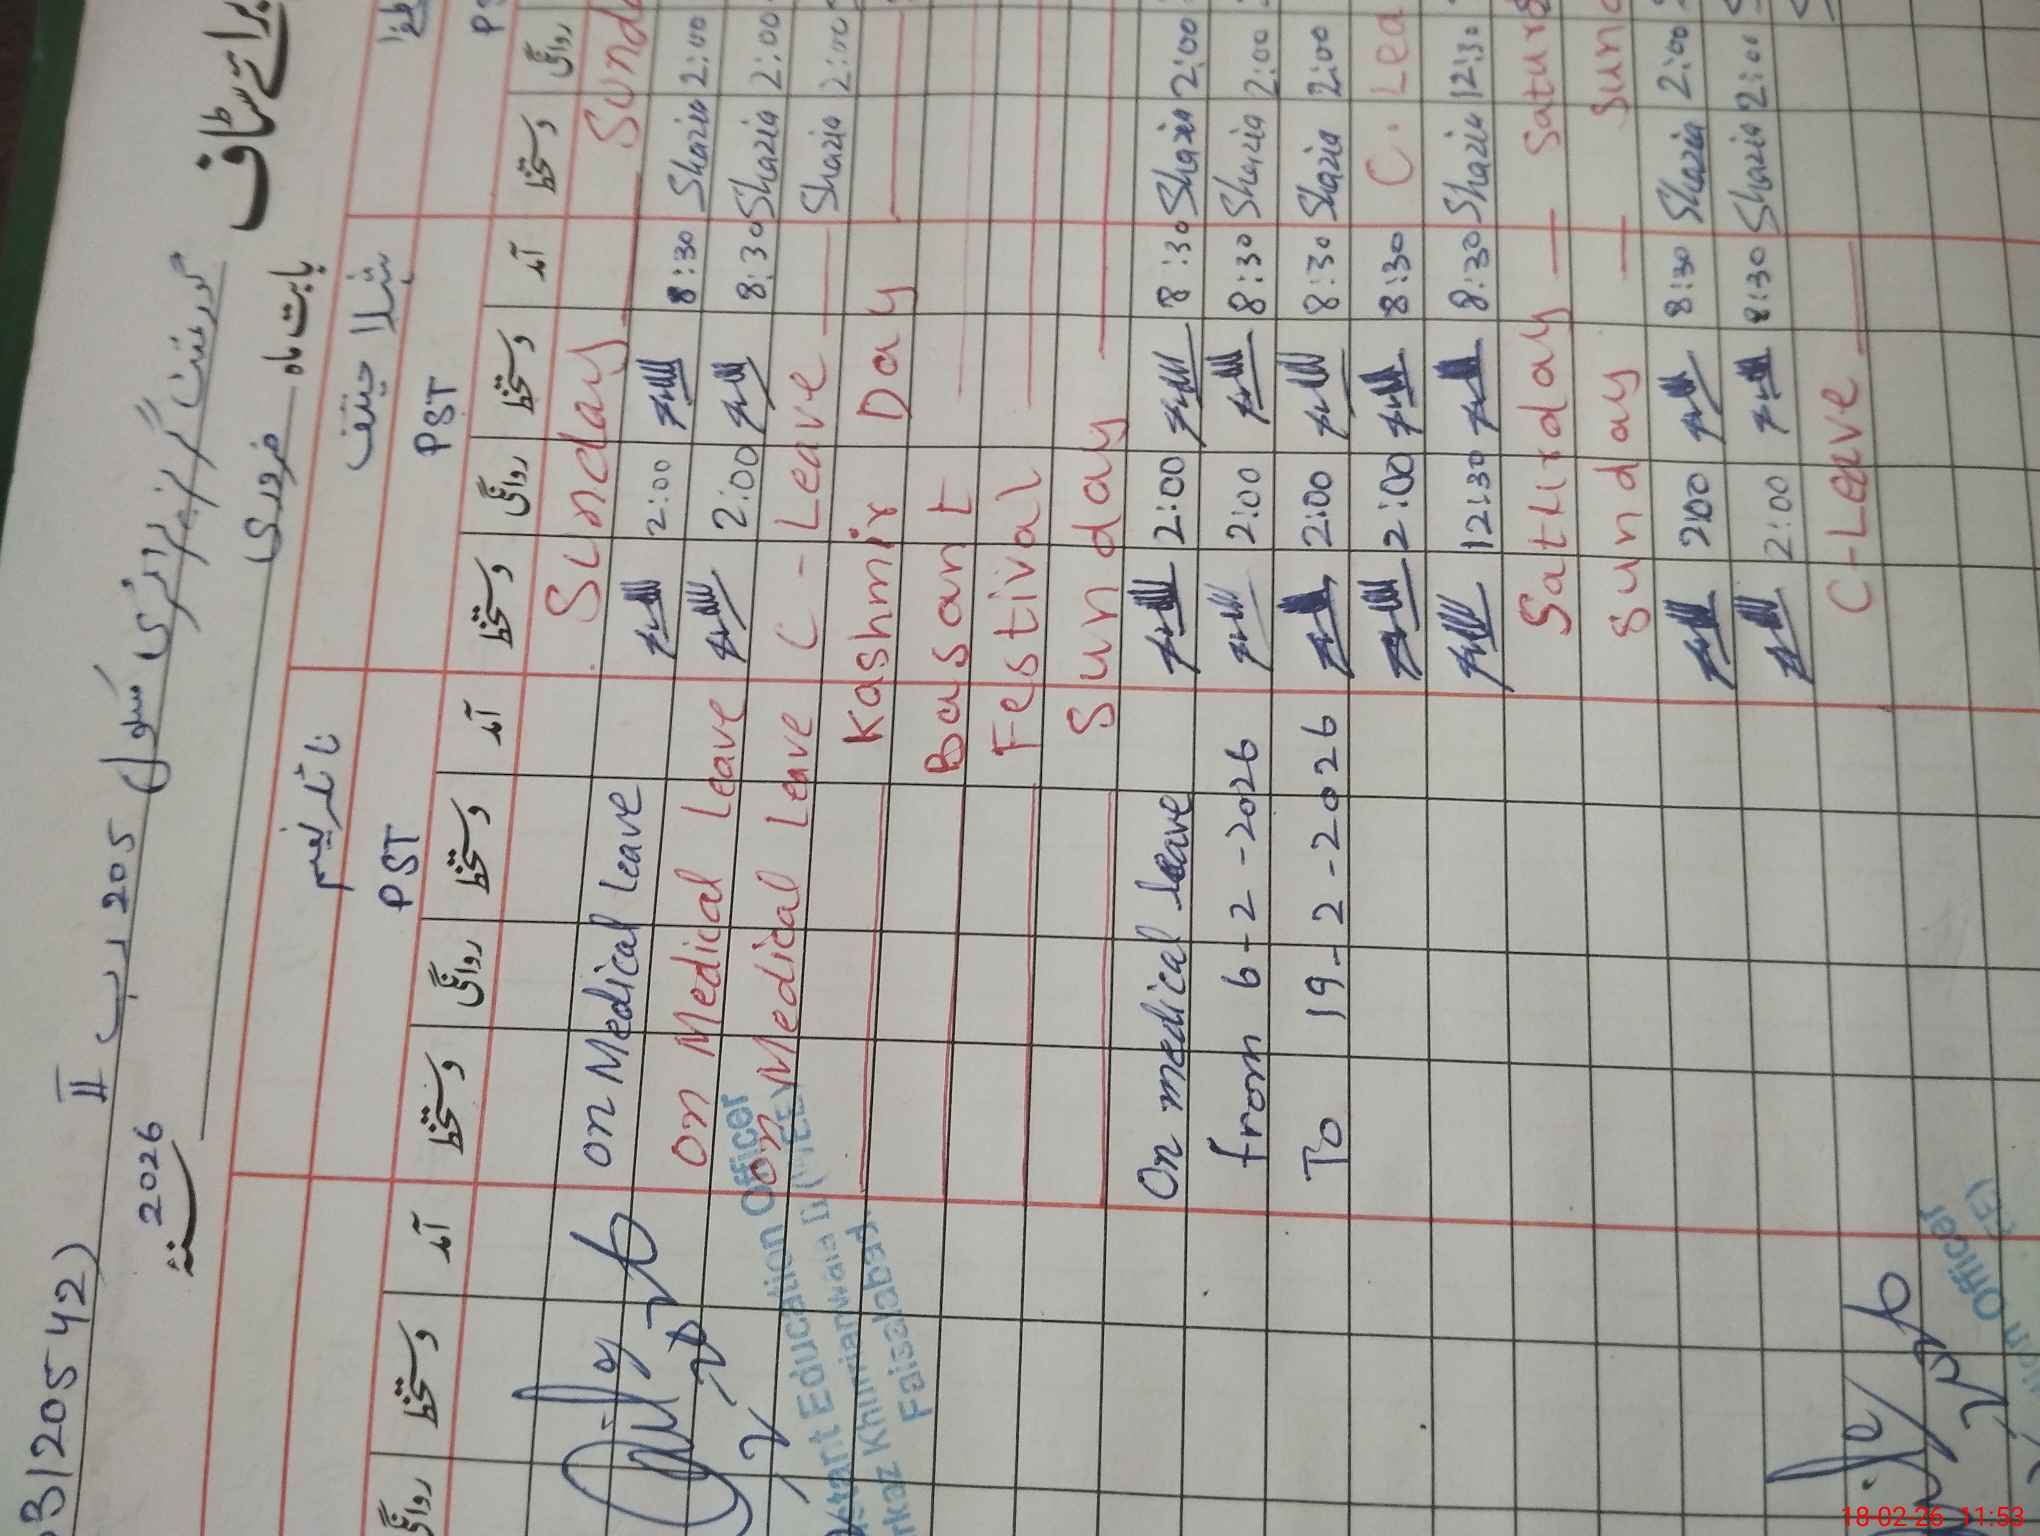 برائے سٹاف
گورنمنٹ گرلز پرائمری سکول 205 ر ب II
31205 42)
بابت ماہ فروری
سنہ 2026
شیلا حنیف
نائلہ نعیم
PST
PST
دستخط روانگی
آمد دستخط روانگی دستخط
آمد دستخط روانگی دستخط
آمد دستخط روانگی
Sunday
Sund
on Medical Leave
2:00
8:30 Shazia 2:00
on Medical Leave
2:00
8:30 Shazia 2:00
on Medical Leave
C-Leave
Shazia 2:00
Kashmir Day
Basant
Festival
Sunday
On medical leave
2:00
8:30 Shazia 2:00
from 6-2-2026
2:00
8:30 Shazia 2:00
To 19-2-2026
2:00
8:30 Shazia 2:00
2:00
8:30
C. Lea
12:30
8:30 Shazia 12:30
Saturday
Saturd
Sunday
Sund
2:00
8:30 Shazia 2:00
2:00
8:30 Shazia 2:00
C-Leave
Education Officer
Faisalabad
Officer
18-02-26 11:53